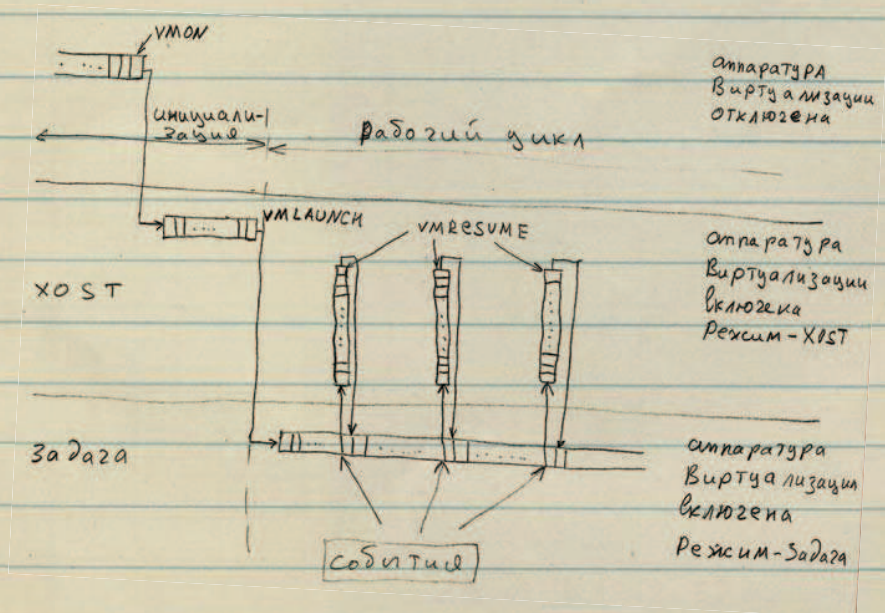 VMON
аппаратура
Виртуализации
отключена
инициали-
зация
рабочий цикл
VMLAUNCH
VMRESUME
аппаратура
Виртуализации
включена
Режим-ХОST
ХОST
Задача
аппаратура
Виртуализации
включена
Режим-Задача
События